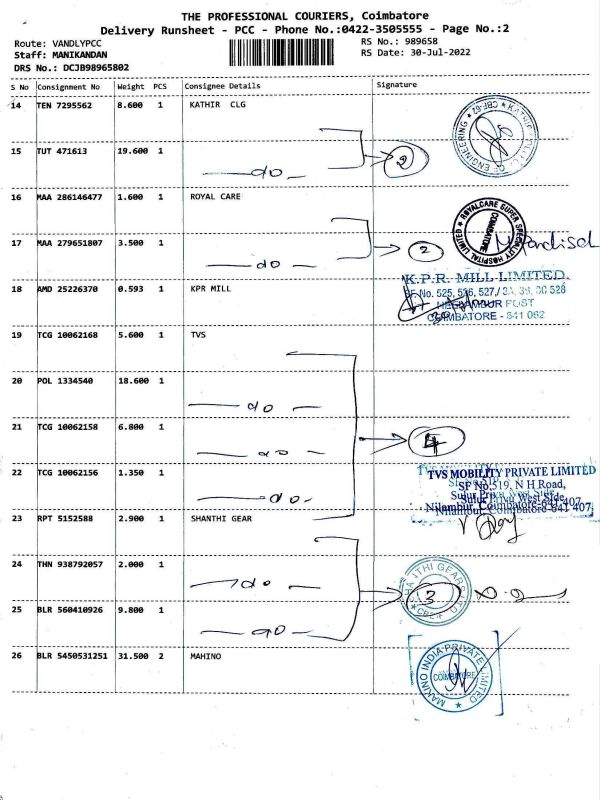 THE PROFESSIONAL COURIERS, Coimbatore
Delivery Runsheet - PCC - Phone No.:0422-3505555 - Page No.:2
Route: VANDLYPCC
RS No.: 989658
Staff: MANIKANDAN
RS Date: 30-Jul-2022
DRS No.: DCJB98965802
S No Consignment No Weight PCS Consignee Details Signature
14 TEN 7295562 8.600 1 KATHIR CLG
15 TUT 471613 19.600 1
do
2
16 MAA 286146477 1.600 1 ROYAL CARE
ROYALCARE SUPER SPECIALITY HOSPITAL LIMITED
COIMBATORE
17 MAA 279651807 3.500 1
do
2
18 AMD 25226370 0.593 1 KPR MILL
K.P.R. MILL LIMITED
COIMBATORE - 641 062
19 TCG 10062168 5.600 1 TVS
20 POL 1334540 18.600 1
do
21 TCG 10062158 6.800 1
do
4
22 TCG 10062156 1.350 1
do
TVS MOBILITY PRIVATE LIMITED
SF No.519, N H Road,
Sulur Priva West Side,
Nilambur, Coimbatore-641 407
23 RPT 5152588 2.900 1 SHANTHI GEAR
24 THN 938792057 2.000 1
do
3
25 BLR 560410926 9.800 1
do
26 BLR 5450531251 31.500 2 MAHINO
MAKINO INDIA PRIVATE LIMITED
COIMBATORE